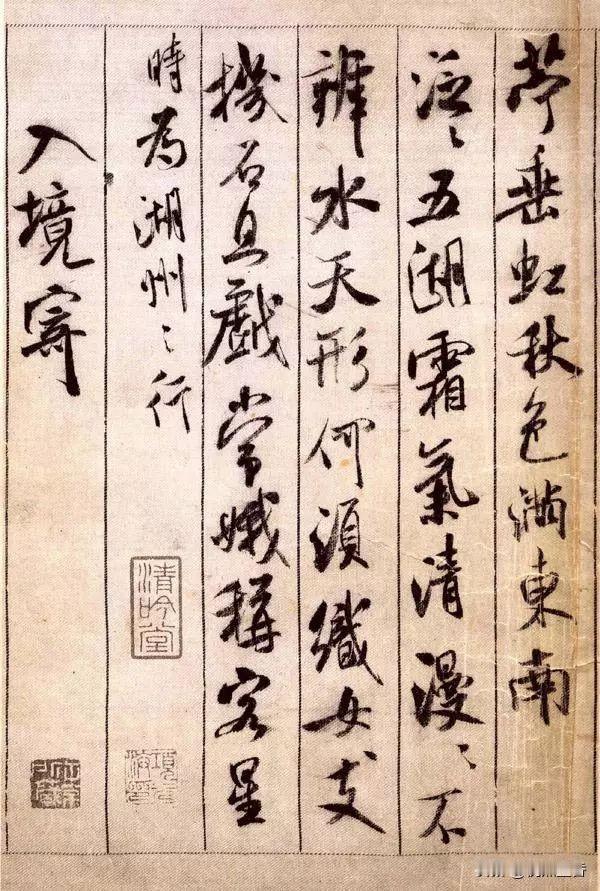 苧垂虹秋色滿東南
泛〻五湖霜氣清漫〻不
辨水天形何須織女支
機石且戲常娥稱客星
時為湖州之行
清吟堂
入境寄